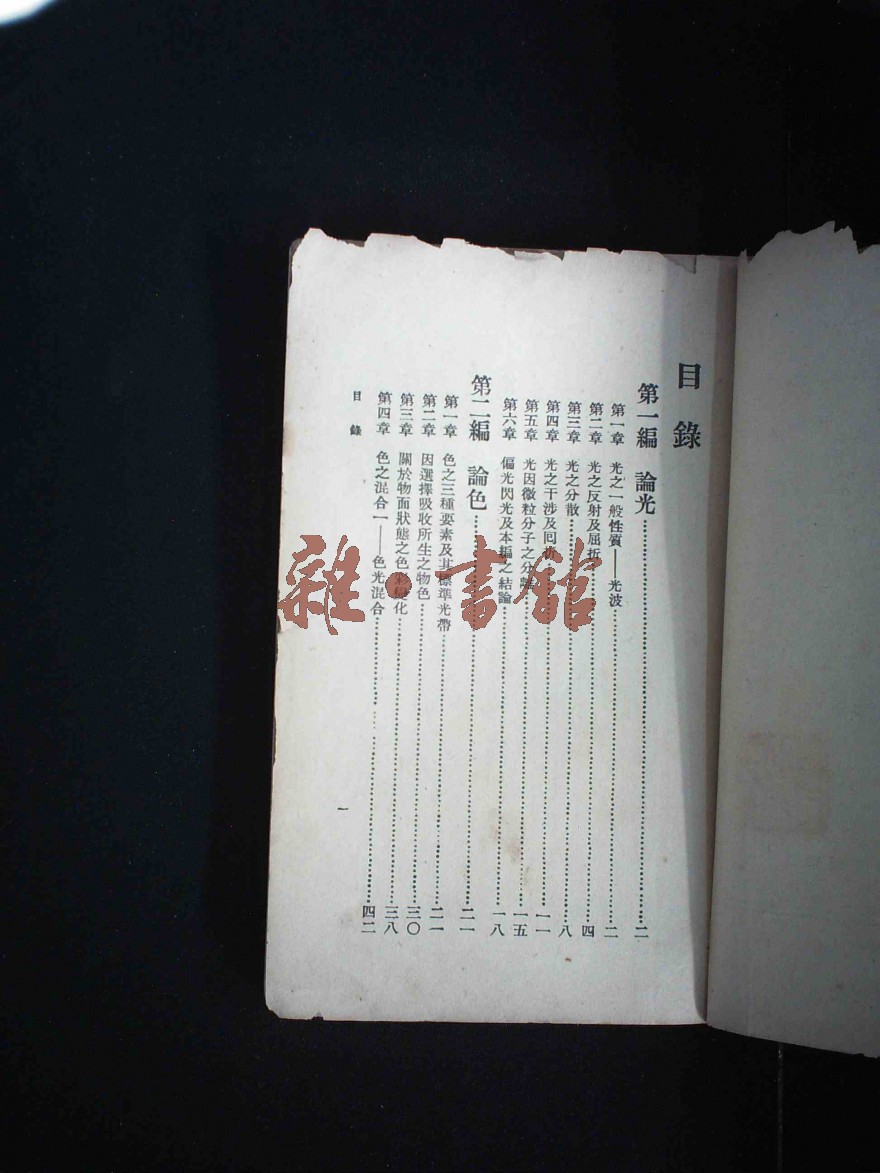 目錄
第一編 論光……二
第一章 光之一般性質——光波……二
第二章 光之反射及屈折……四
第三章 光之分散……八
第四章 光之干涉及囘折……一一
第五章 光因微粒分子之分離……一五
第六章 偏光閃光及本編之結論……一八
第二編 論色……二一
第一章 色之三種要素及其標準光帶……二一
第二章 因選擇吸收所生之物色……三〇
第三章 關於物面狀態之色彩變化……三八
第四章 色之混合一——色光混合……四二
目錄
一
雜·書館